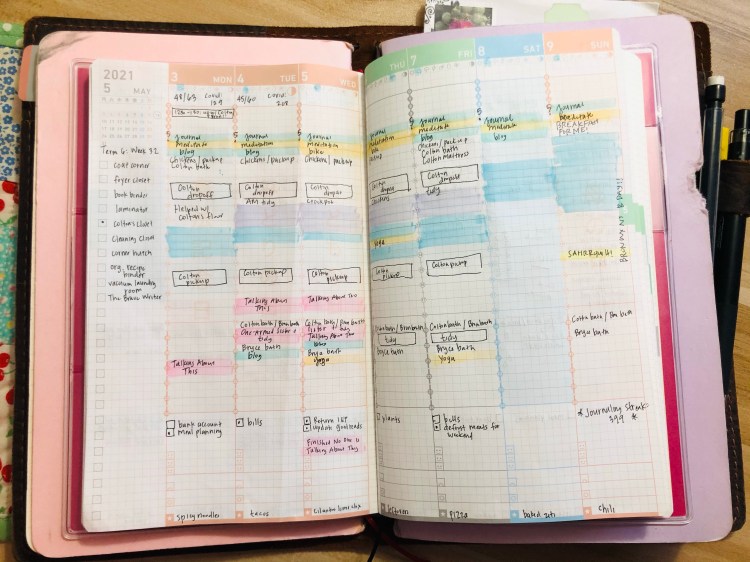 2021
5 MAY
Term 6: Week 32
coat corner
foyer closet
book binder
laminator
Colton's closet
Cleaning Closet
corner hutch
org. recipe
binder
vacuum laundry
room
The Brave Writer
3 MON
48/63 Covid:
139
journal
meditation
blog
Chickens/packup
Colton bath
Colton
dropoff
Helped w/
Colton's floor
Colton
pickup
Talking About
This
bank account
meal planning
spicy noodles
4 TUE
45/60 Covid:
208
journal
meditation
blog
chickens/packup
Colton
dropoff
AM tidy
Colton pickup
Talking About
This
Colton bath/Bri bath
One-Armed Sister &
tidy
Bryce bath
blog
bills
tacos
5 WED
journal
meditation
Chickens/packup
Colton
dropoff
Crockpot
Colton
pickup
Talking About This
Talking About This
blog
Bryce bath
yoga
Return
update
Finished No One is
Talking About This
Cilantro lime
THU
journal
meditation
Colton
dropoff
chickens
yoga
Colton pickup
tidy
Bryce bath
plants
7 FRI
journal
meditate
blog
chickens/packup
Colton bath
Colton mattress
Colton
dropoff
tidy
Colton pickup
Colton bath/Bri bath
tidy
Bryce bath
yoga
bills
defrost meals for
weekend
pizza
8 SAT
journal
meditate
blog
baked ziti
9 SUN
journal
meditate
BREAKFAST
FOR ME!
Colton bath/Bri bath
Bryce bath
Journaling Streak:
399 *
chili